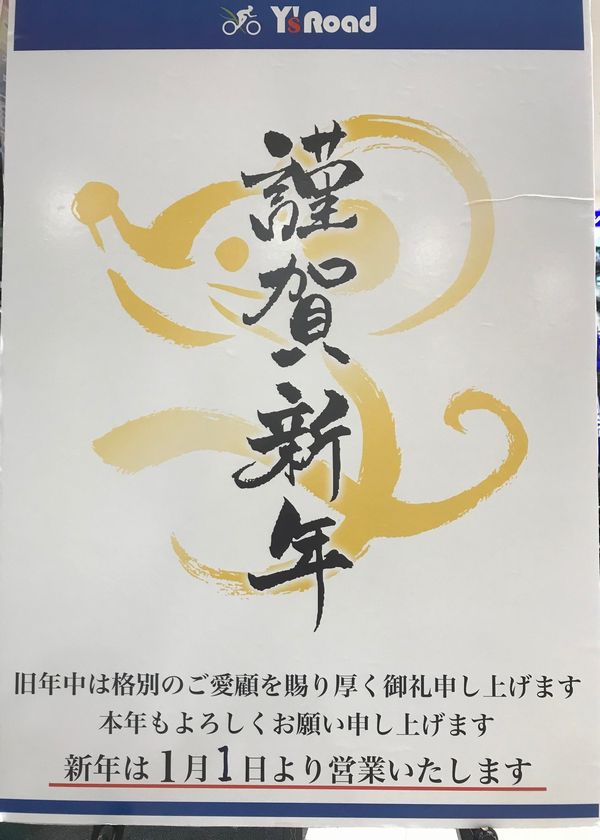 Y'sRoad
謹賀新年
旧年中は格別のご愛顧を賜り厚く御礼申し上げます
本年もよろしくお願い申し上げます
新年は1月1日より営業いたします